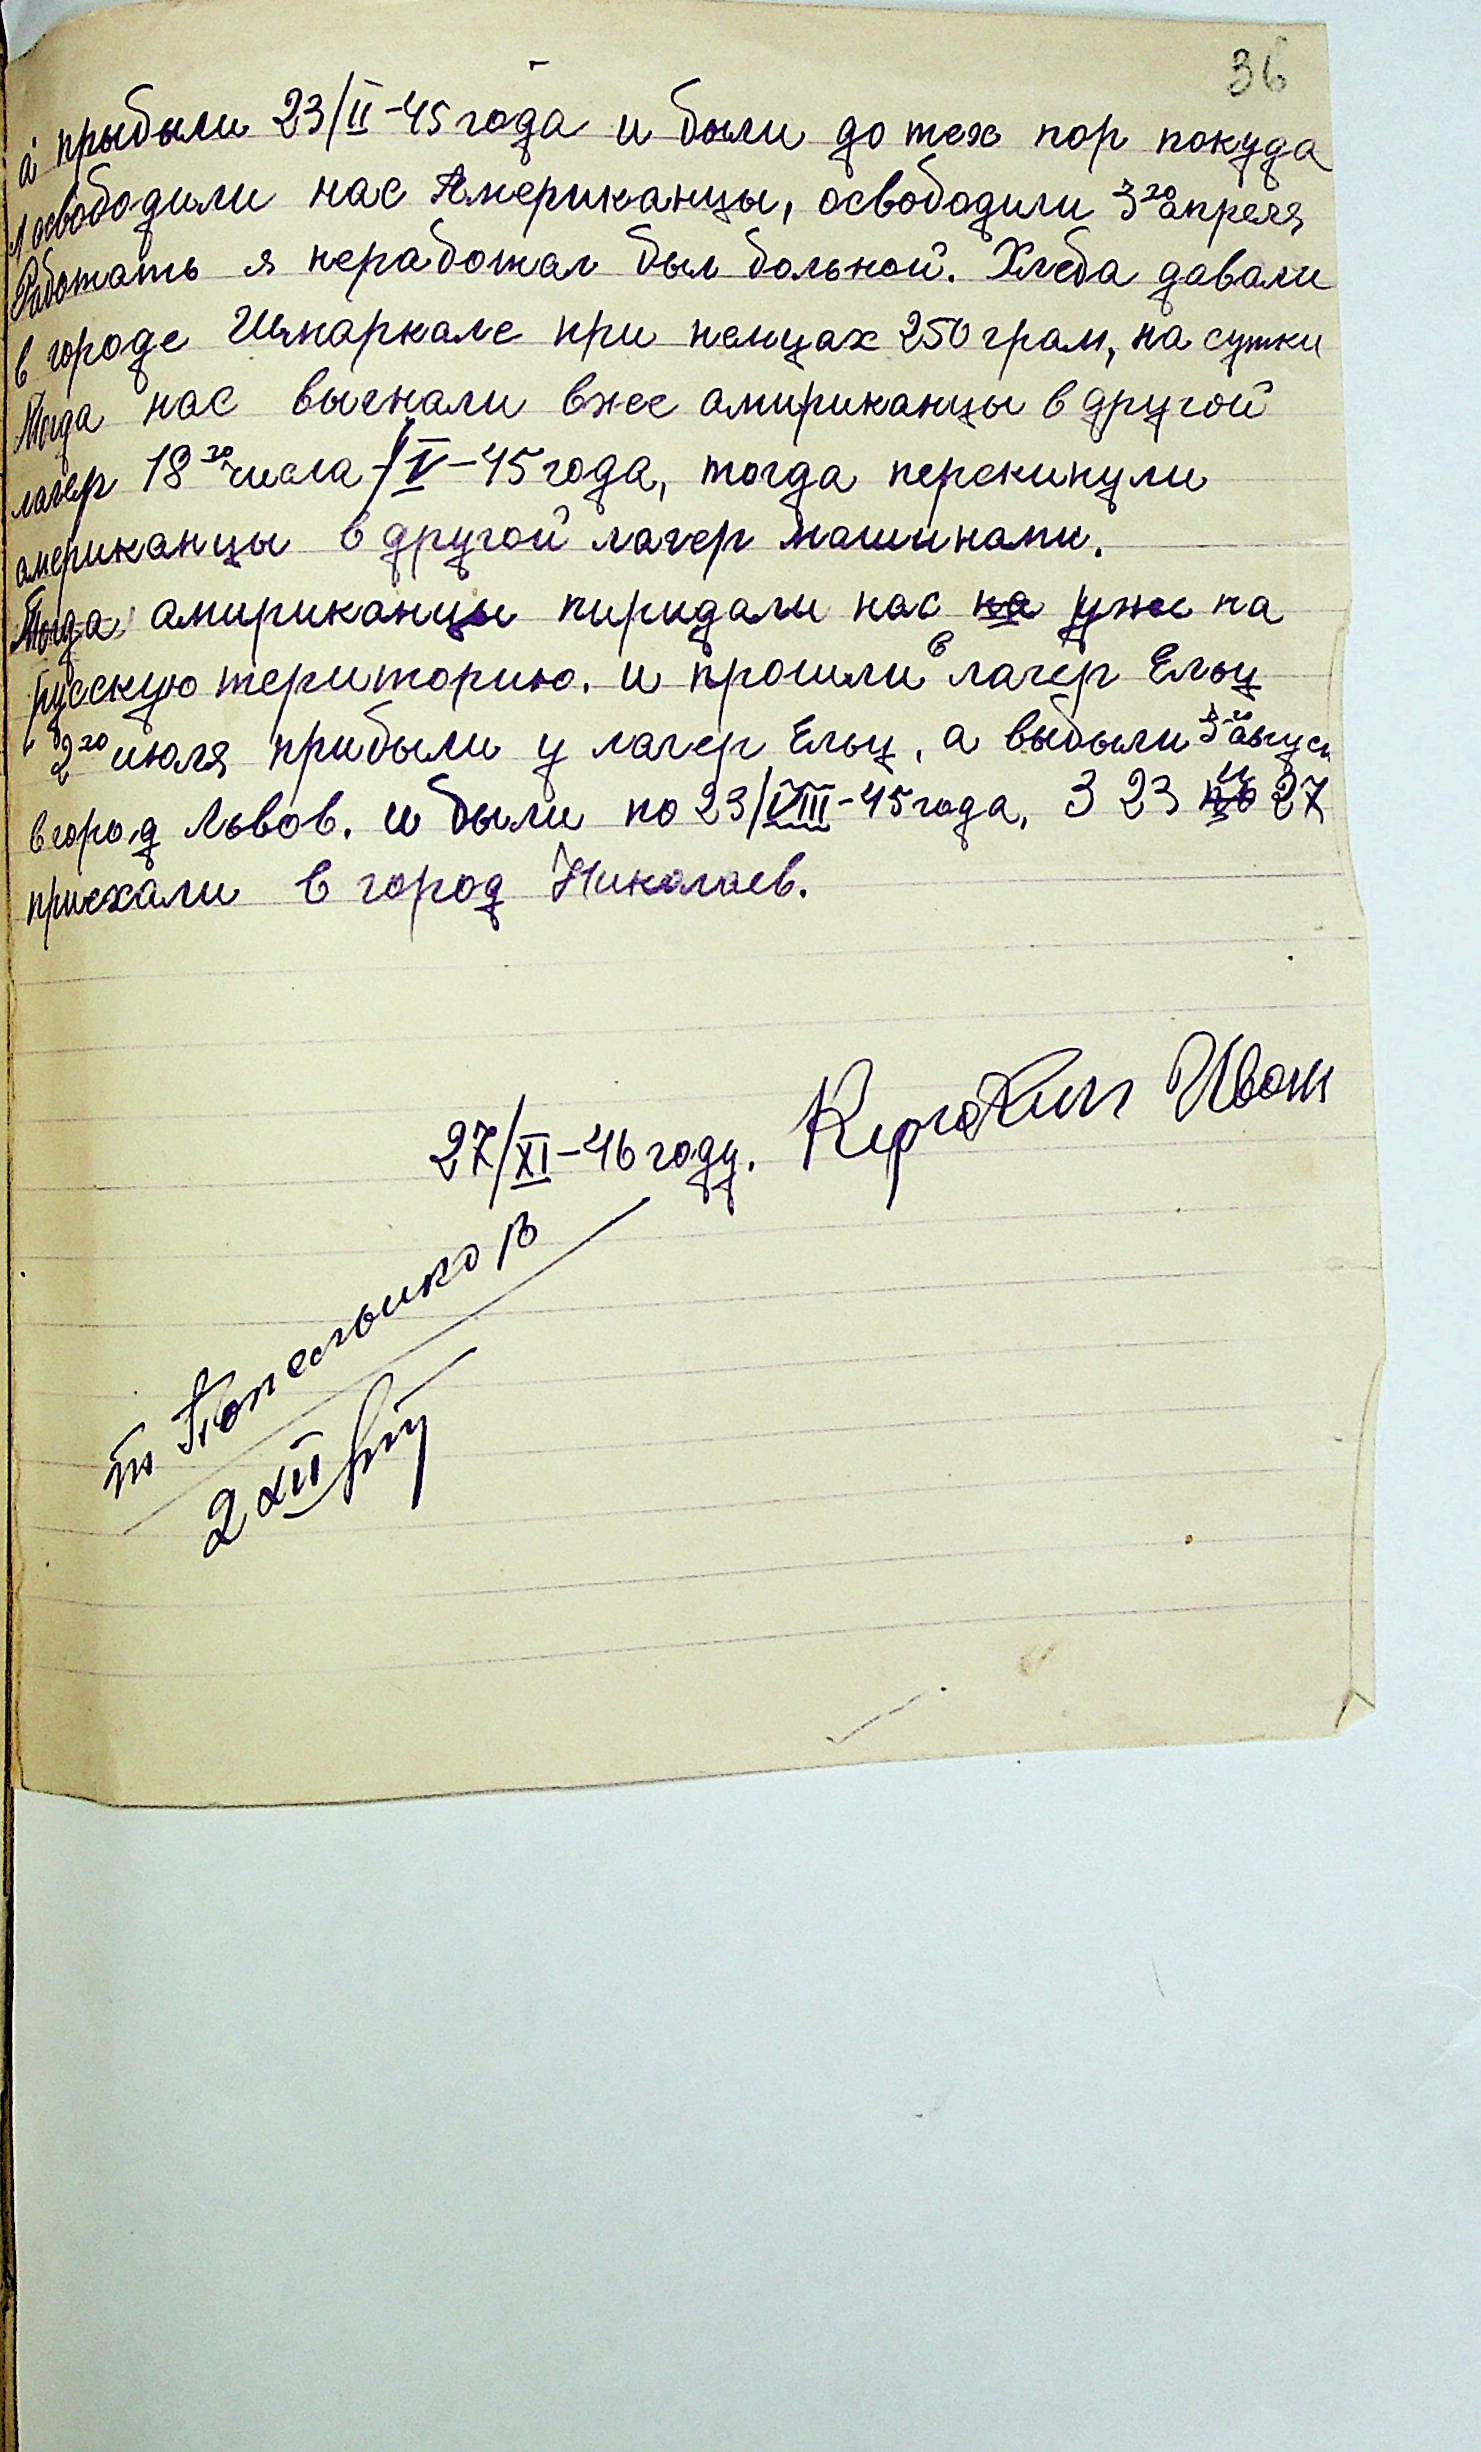 36
а прыбыли 23/II-45 года и были до тех пор покуда
освободили нас Американцы, освободили 3го апреля
Работать я неработал был больной. Хлеба давали
в городе Шмаркале при немцах 250 грам, на сутки
Тогда нас выгнали вжее амириканцы в другой
лагер 18го числа /V-45 года, тогда перекинули
американцы в другой лагер машинами.
Тогда амириканцы пиридали нас на уже на
русскую територию. и прошли в лагер Ельц
2го июля прибыли у лагер Ельц, а выбыли 3го август
в город Львов. и были по 23/VIII-45 года, З 23 27
приехали в город Николаев.
27/XI-46 году. Иван
2 XII